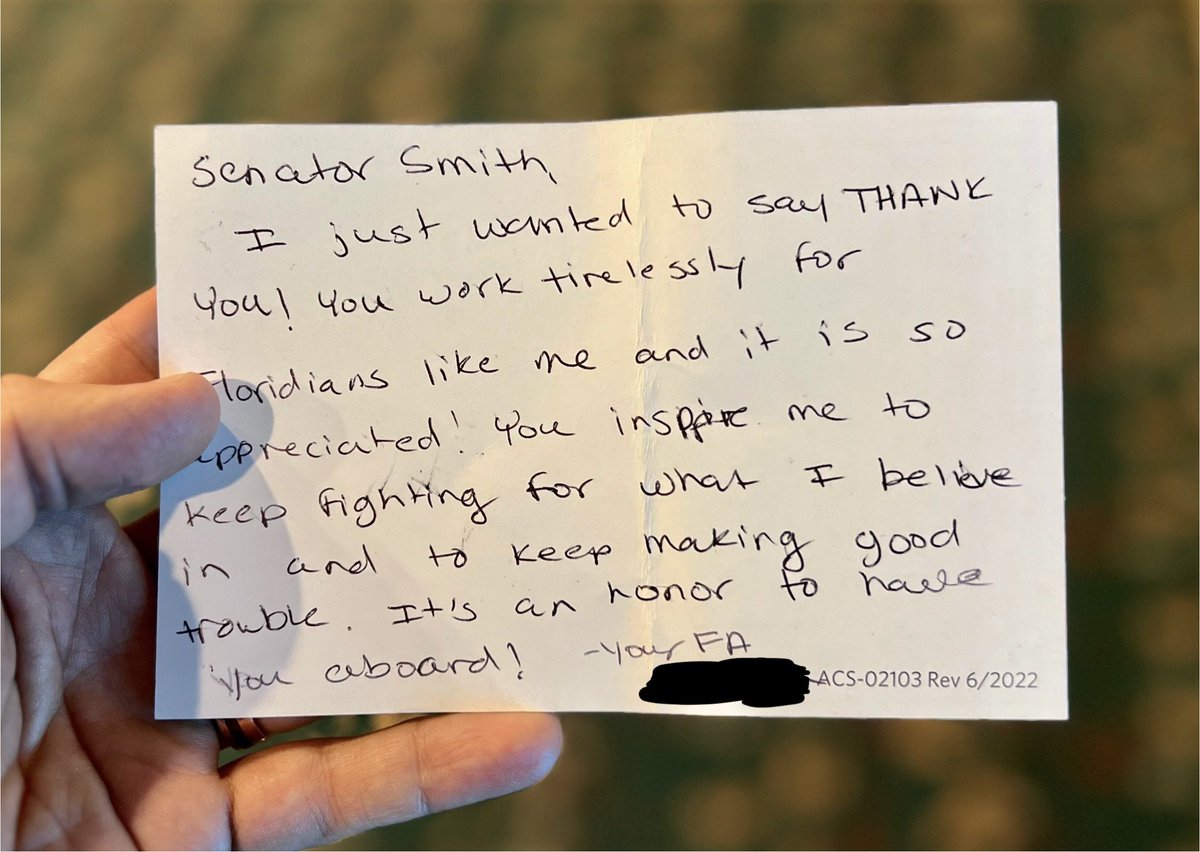 Senator Smith,
I just wanted to say THANK
you! You work tirelessly for
Floridians like me and it is so
appreciated! You inspire me to
keep fighting for what I believe
in and to keep making good
trouble. It's an honor to have
you aboard! -Your FA
ACS-02103 Rev 6/2022